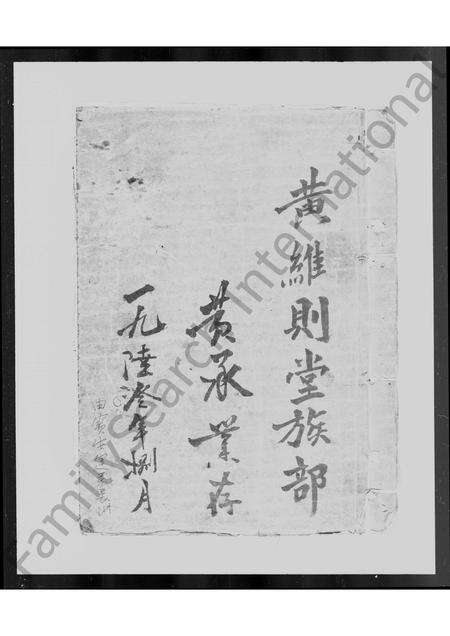 黃維則堂族部
黄承業存
一九陸叁年捌月
FamilySearch International